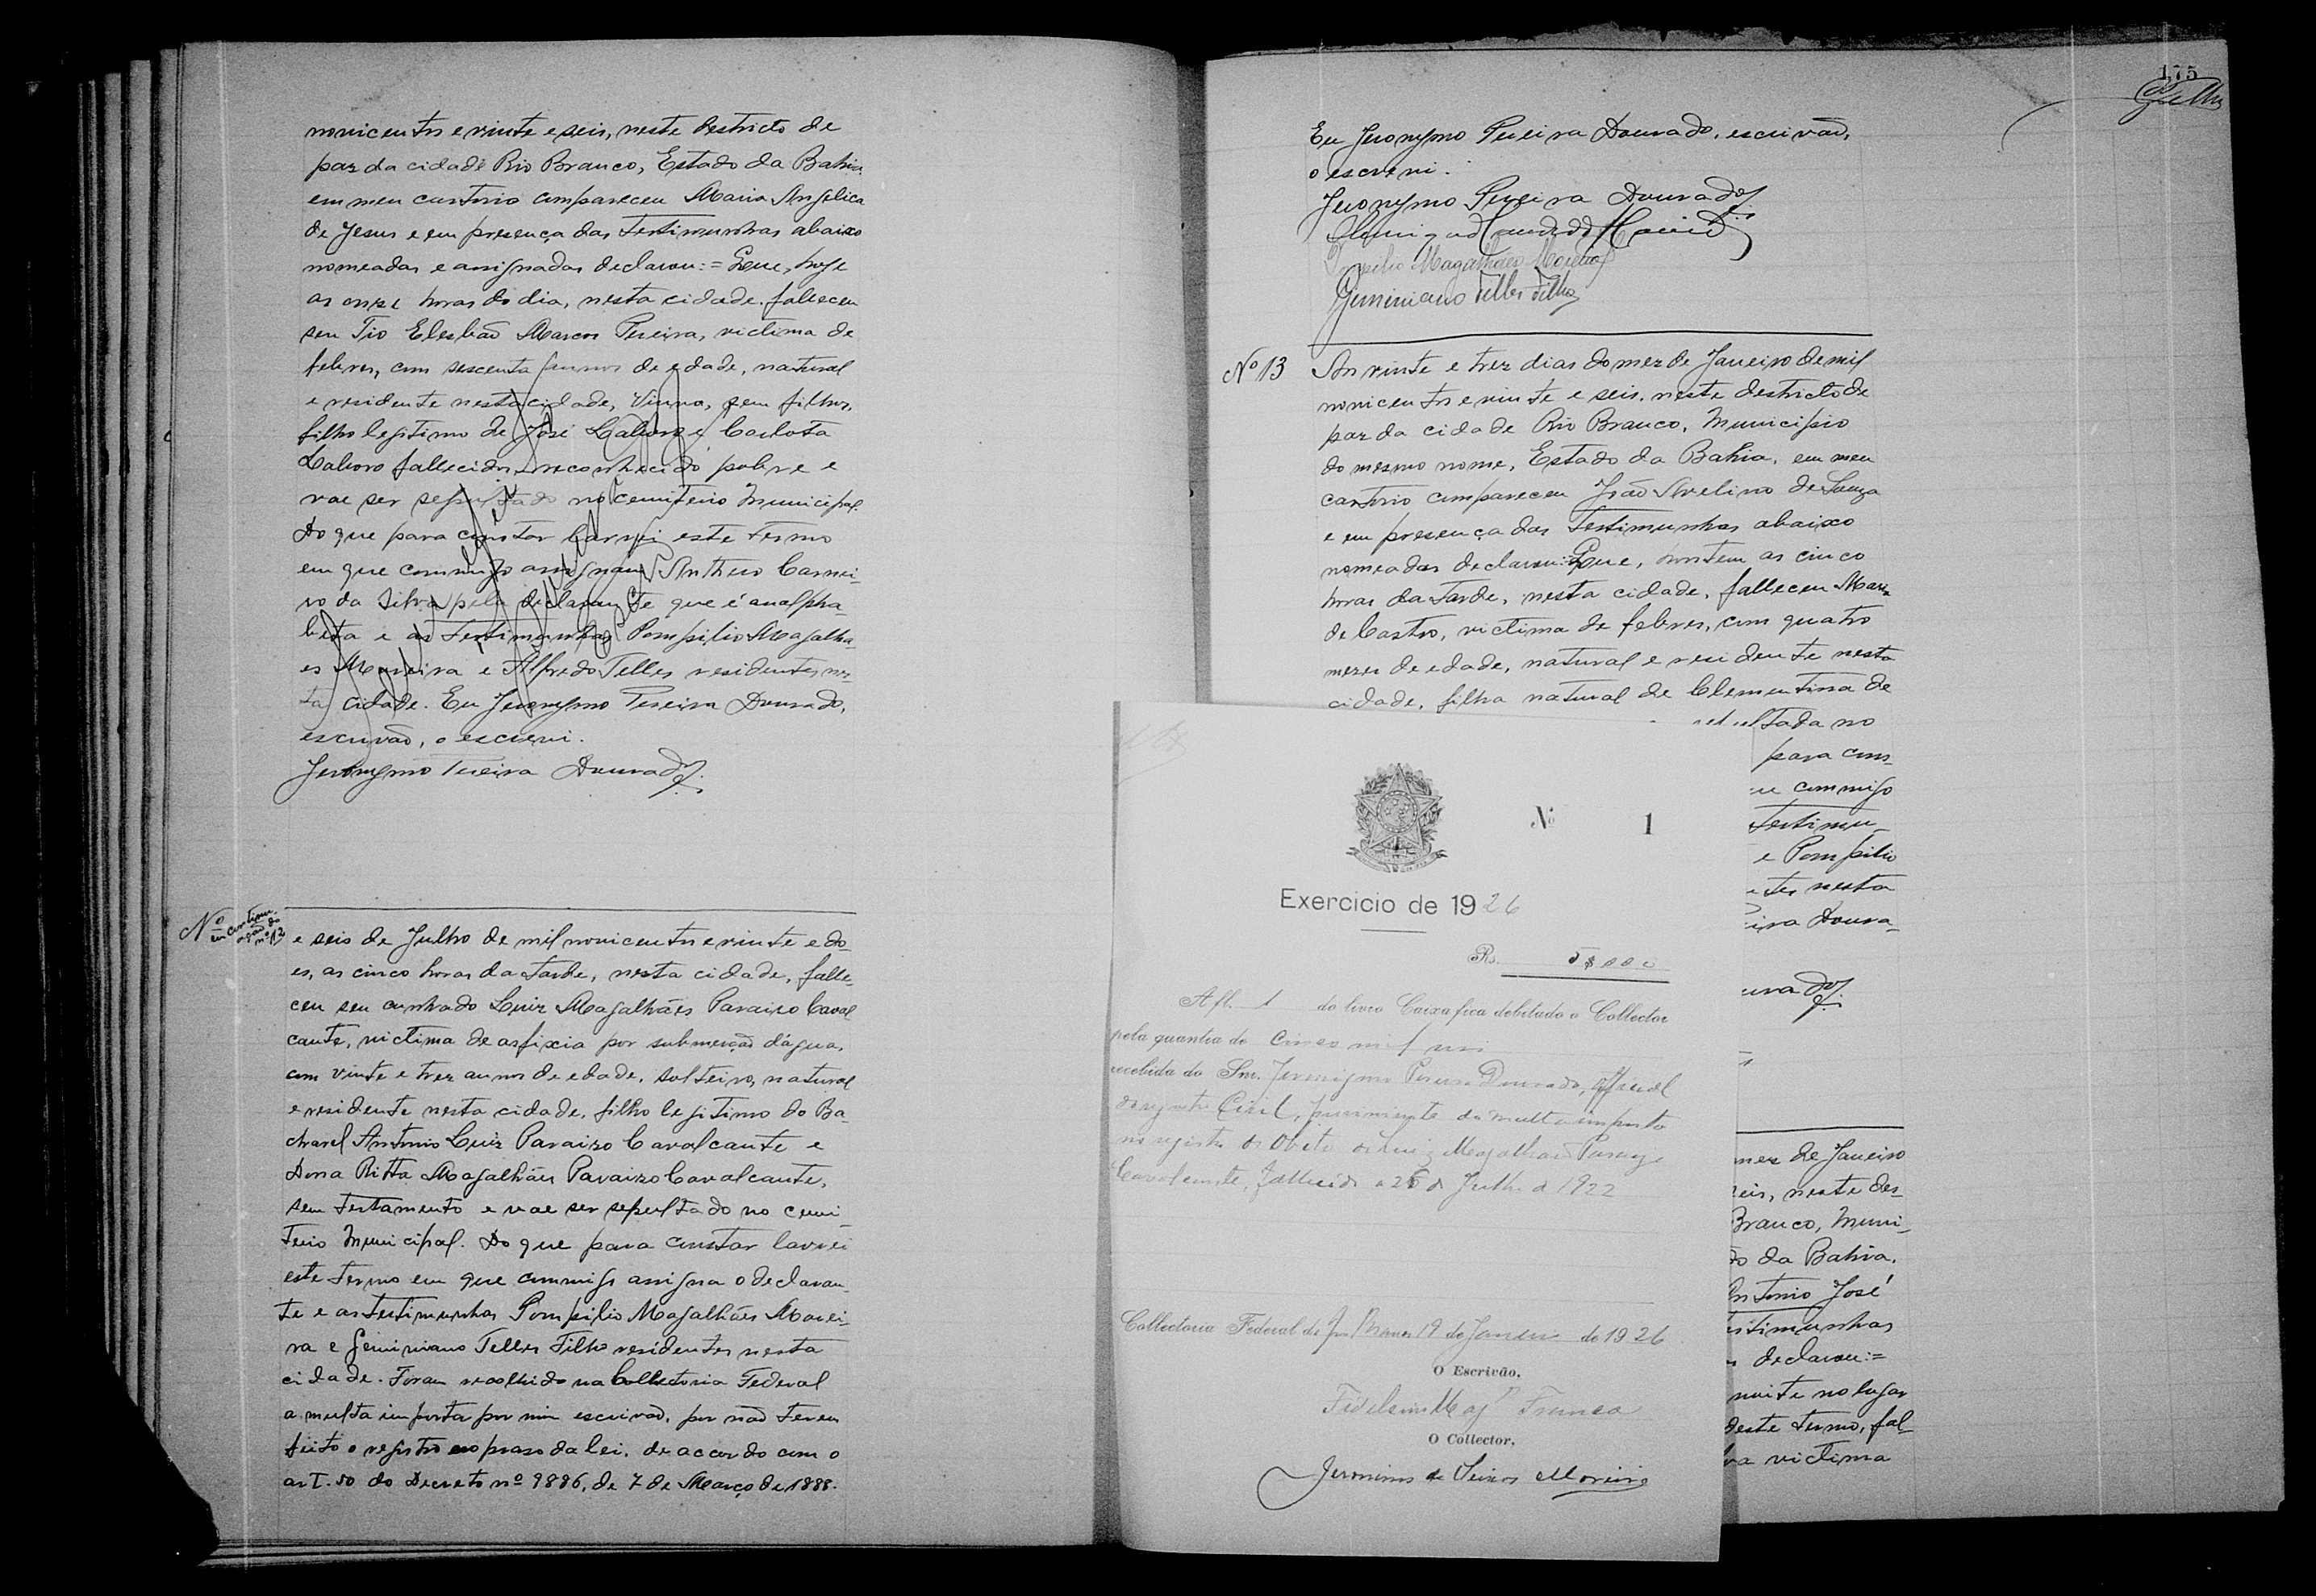 novicentos e vinte e seis, neste destricto de
paz da cidade Rio Branco, Estado da Bahia
em meu cartorio compareceu Maria Angelica
de Jesus e em presença das testimunhas abaixo
nomeadas e assignadas declarou:= Que, hoje
as onze horas do dia, nesta cidade, falleceu
seu Tio Elesbão Marcos Pereira, victima de
febres, com sescenta annos de edade, natural
e residente nesta cidade, Viuvo, sem filhos,
filho legitimo de José e Carlota
fallecidos, reconhecido pobre e
vae ser sepultado no cemiterio Municipal.
Do que para constar lavrei este termo
em que commigo assignam Anthero Carnei-
ro da Silva pela declarante que é analpha
beta e as testimunhas Pompilio Magalhã-
es Moreira e Alfredo Telles residentes nes-
ta cidade. Eu Jeronymo Pereira Dourado,
escrivão, o escrevi.
Jeronymo Pereira Dourado.
Nº em continuação do nº 12
e seis de Julho de mil novicentos e vinte e do-
es, as cinco horas da tarde, nesta cidade, falle-
ceu seu cunhado Luiz Magalhães Paraizo Caval
cante, victima de asfixia por submerção d'água,
com vinte e trez annos de edade, solteiro, natural
e residente nesta cidade, filho legitimo do Ba-
charel Antonio Luiz Paraizo Cavalcante e
Dona Ritta Magalhães Paraizo Cavalcante,
sem testamento e vae ser sepultado no cemi-
terio Municipal. Do que para constar lavrei
este termo em que commigo assigna o declaran-
te e as testimunhas Pompilio Magalhães Morei-
ra e Geminiano Telles Filho residentes nesta
cidade. Foram recolhido na Collectoria Federal
a multa imposta por mim escrivão, por não terem
feito o registro no praso da lei, de accordo com o
art. 50 do Decreto nº 9886, de 7 de Março de 1888.
175
Eu Jeronymo Pereira Dourado, escrivão,
o escrevi.
Jeronymo Pereira Dourado.
Pompilio Magalhães Moreira
Geminiano Telles Filho
Nº 13
Aos vinte e trez dias do mez de Janeiro de mil
novicentos e vinte e seis, neste destricto de
paz da cidade Rio Branco, Municipio
do mesmo nome, Estado da Bahia, em meu
cartorio compareceu João Avelino de Souza
e em presença das testimunhas abaixo
nomeadas declarou:= Que, hontem as cinco
horas da tarde, nesta cidade, falleceu Maria
de Castro, victima de febres, com quatro
mezes de edade, natural e residente nesta
cidade, filha natural de Clementina de
sepultada no
para cons-
commigo
testimu-
e Pompilio
nesta
Doura-
mez de Janeiro
seis, neste des-
Branco, Muni-
da Bahia,
Antonio José
testimunhas
declarou:=
noite no lugar
deste termo, fal-
victima
Nº 1
Exercicio de 1926
Rs. 5$000
A fl. 1 do livro Caixa fica debitado o Collector
pela quantia de Cinco mil reis
recebida do Snr. Jeronymo Pereira Dourado, official
do registro Civil, proveniente da multa imposta
no registro de Obito de Luiz Magalhães Paraizo
Cavalcante, fallecido a 26 de Julho de 1922
Collectoria Federal de Rio Branco 19 de Janeiro de 1926
O Escrivão,
Franca
O Collector,
Jeronimo de Seixas Moreira